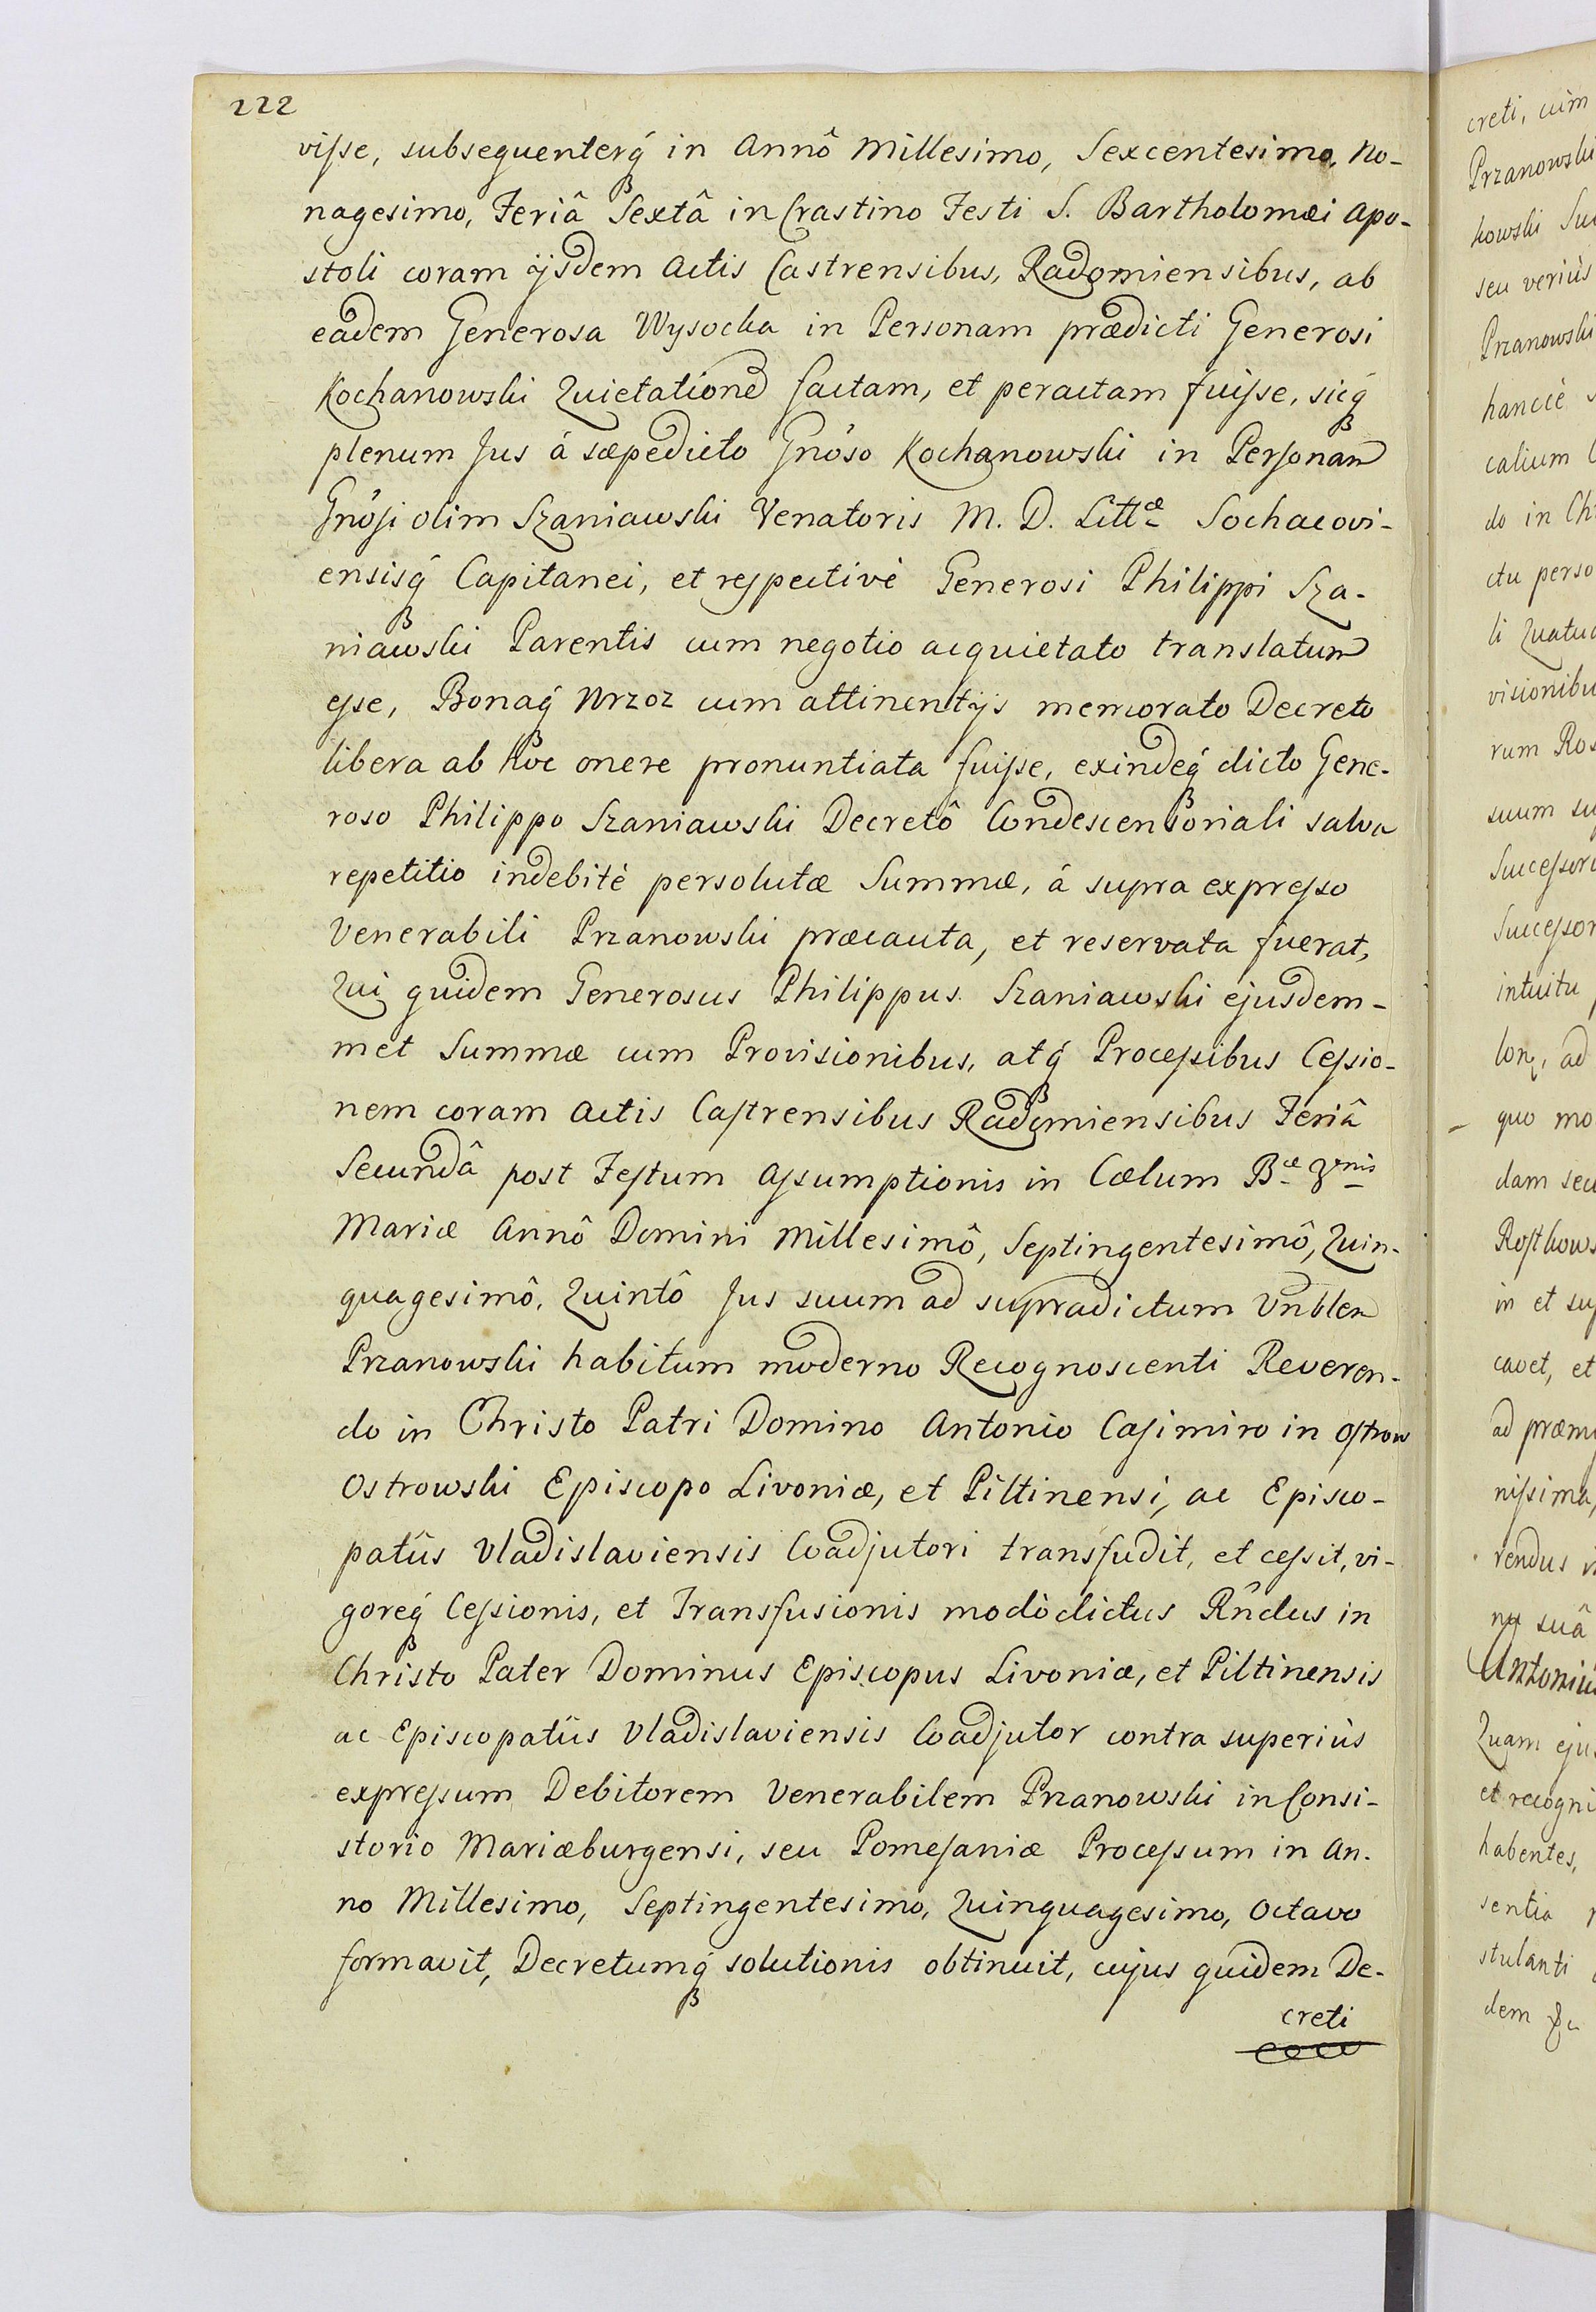 222
visse, subsequenterq́ in Annô Millesimo, Sexcentesimo, No-
nagesimo, Feriâ Sextâ in Crastino Festi S. Bartholomæi Apo-
stoli coram ijsdem Actis Castrensibus, Radomiensibus, ab
eadem Generosa Wysocka in Personam prædicti Generosi
Kochanowski Quietationẽ factam, et peractam fuisse, sicq́
plenum Jus á sæpedicto Gnõso Kochanowski in Personam
Gnõsi olim Szaniawski Venatoris M. D. Littæ Sochacovi-
ensisq́ Capitanei, et respectivè Generosi Philippi Sza-
niawski Parentis cum negotio acquietato translatum
esse, Bonaq́ Wrzoz cum attinentijs memorato Decreto
libera ab hoc onere pronuntiata fuisse, exindeq́ dicto Gene-
roso Philippo Szaniawski Decretô Condescensoriali salva
repetitio indebitè persolutæ Summæ, á supra expresso
Venerabili Przanowski præcauta, et reservata fuerat,
Qui quidem Generosus Philippus Szaniawski ejusdem-
met Summæ cum Provisionibus, atq́ Processibus Cessio-
nem coram Actis Castrensibus Radomiensibus Feriâ
Secundâ post Festum Assumptionis in Cælum Bæ Vnis
Mariæ Annô Domini Millesimô, Septingentesimô, Quin-
quagesimô, Quintô Jus suum ad supradictum Vnblem
Przanowski habitum moderno Recognoscenti Reveren-
do in Christo Patri Domino Antonio Casimiro in Ostrow
Ostrowski Episcopo Livoniæ, et Piltinensi, ac Episco-
patûs Vladislaviensis Coadjutori transfudit, et cessit, vi-
goreq́ Cessionis, et Transfusionis modò dictus Rñdus in
Christo Pater Dominus Episcopus Livoniæ, et Piltinensis
ac Episcopatûs Vladislaviensis Coadjutor contra superiùs
expressum Debitorem Venerabilem Przanowski in Consi-
storio Mariæburgensi, seu Pomesaniæ Processum in An-
no Millesimo, Septingentesimo, Quinquagesimo, Octavo
formavit, Decretumq́ solutionis obtinuit, cujus quidem De-
creti
creti, cùm
Przanowski
kowski Su
seu veriùs
Przanowski
hancce
calium
do in Ch
ctu perso
li Quatuo
visionibu
rum Ros
suum su
Successori
Successor
intuitu
lonq, ad
quo mo
dam secu
Rostkows
in et sup
cavet, et
ad præmi
nissima,
rendus i
nu suâ
Antoniu
Quam eju
et recogni
habentes,
sentia
stulanti
dem &c